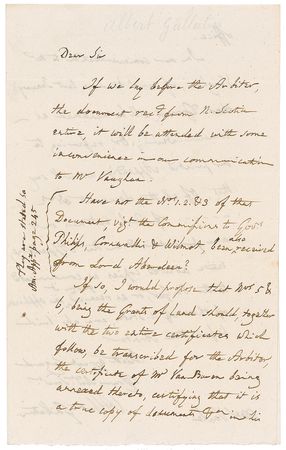 Albert Gallatin
Dear Sir
If we lay before the Arbiter,
the document recd from N. Scotia
entire, it will be attended with some
inconvenience in our communication
to Mr Vaughan.
Have not the Nos 1. 2. & 3 of that
Document, vizt the Commissions to Govrs
Philips, Cornwallis & Wilmot, been also received
from Lord Aberdeen?
If so, I would propose that Nos 5 &
6, being the Grants of land should, together
with the two entire certificates which
follow be transcribed for the Arbiter,
the certificate of Mr Van Buren being
annexed thereto, certifying that it is
a true copy of documents in his
They are stated so
page 245